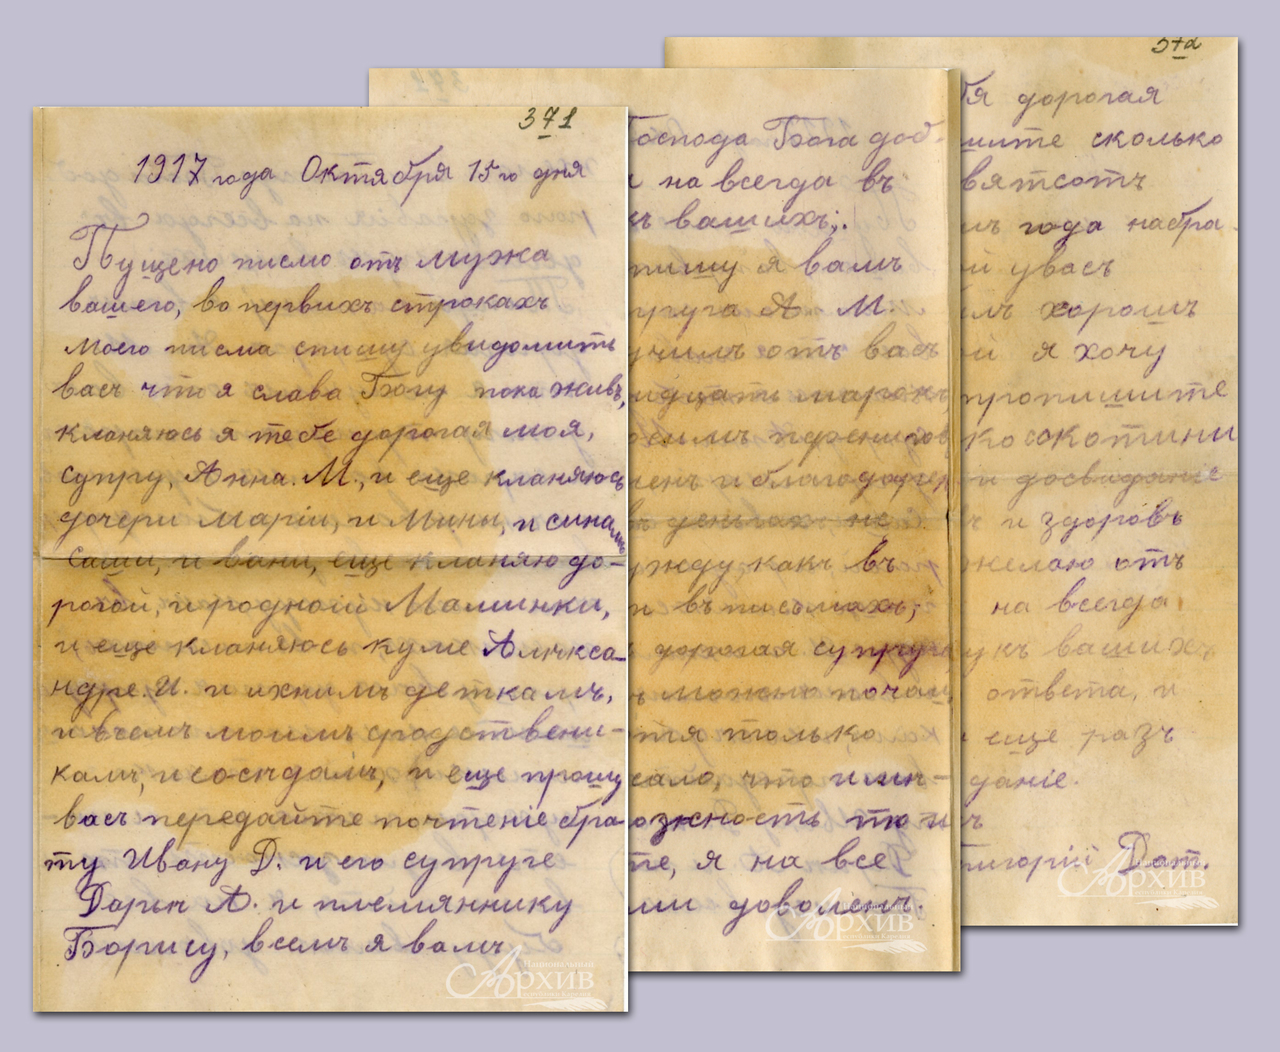 371
1917 года Октября 15го дня
Пущено писмо отъ мужа
вашего, во первихъ строкахъ
моего писма спишу увидомить
васъ что я слава Богу пока живъ,
кланяюсь я тебе дорогая моя,
супру, Анна. М., и еще кланяюсь
дочери Маріи, и Мины, и синамъ
Саши, и вани, еще кланяю до-
рогой, и родной Маминки,
и еще кланяюсь куме Аликса-
ндре. И. и ихнимъ деткамъ,
и всемъ моимъ сродствени-
камъ, и соседамъ, и еще прошу
васъ передайте почтеніе бра-
ту Ивану Д. и его супруге
Дарьи А. и племяннику
Борису, всемъ я вамъ
Национальный
Архив
Господа Бога доб-
на всегда въ
вашихъ;.
пишу я вамъ
А. М.
отъ васъ
марокъ,
и благодорен
деньгах не
какъ въ
въ письмахъ;
дорогая супруга
можно почащ
только
сало, что
на все
доволенъ.
Национальный
Архив
дорогая
сколько
года набра-
увасъ
хорошъ
я хочу
пропишите
скотини
и досвиданіе
и здоровъ
желаю отъ
на всегда
вашихъ
ответа, и
еще разъ
даніе.
Дат.
Архив